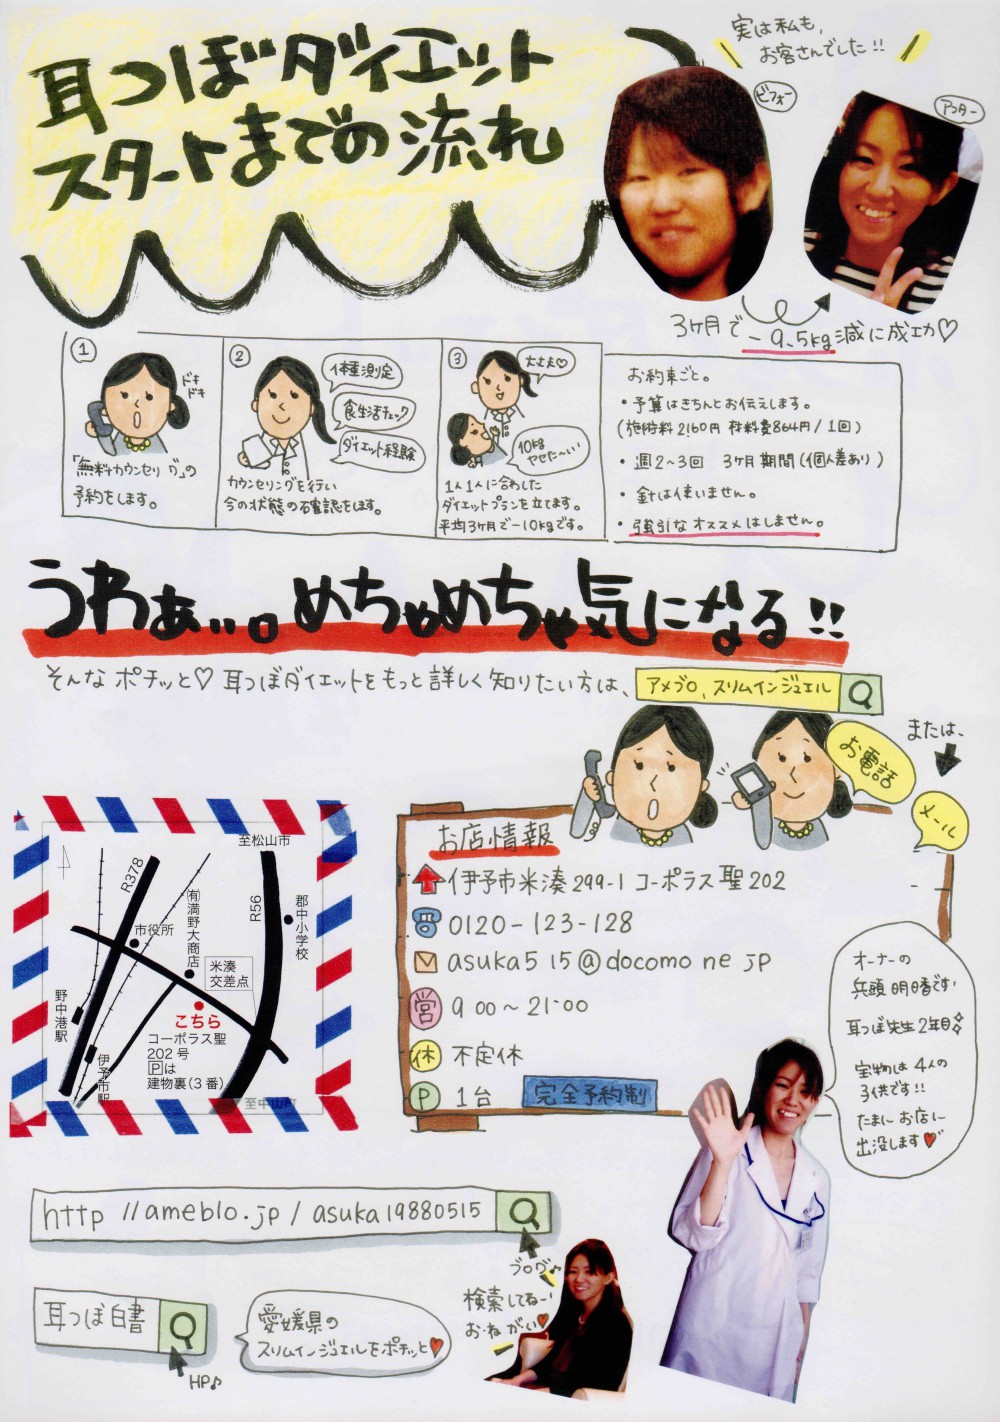 耳つぼダイエット
スタートまでの流れ
実は私も、
お客さんでした!!
ビフォー
アフター
3ヶ月で -9.5kg減に成功♡
①
ドキドキ
「無料カウンセリング」の
予約をします。
②
体重測定
食生活チェック
ダイエット経験
カウンセリングを行い
今の状態の確認をします。
③
大丈夫♡
10kg
やせた〜い
1人1人に合わした
ダイエットプランを立てます。
平均3ヶ月で-10kgです。
お約束ごと。
・予算はきちんとお伝えします。
(施術料2160円 材料費864円/1回)
・週2〜3回 3ヶ月期間(個人差あり)
・針は使いません。
・強引なオススメはしません。
うわぁ...。めちゃめちゃ気になる!!
そんなポチッと♡耳つぼダイエットをもっと詳しく知りたい方は、
アメブロ、スリムインジュエル
または、
お電話
メール
至松山市
R378
R56
(有)満野大商店
郡中小学校
市役所
米湊
交差点
野中港駅
伊予市駅
こちら
コーポラス聖
202号
Pは
建物裏(3番)
至中山町
お店情報
伊予市米湊299-1 コーポラス聖202
0120-123-128
asuka5 15@docomo ne jp
営 9 00〜21:00
休 不定休
P 1台 完全予約制
オーナーの
兵頭 明日香です
耳つぼ先生2年目
宝物は4人の
子供です!!
たまにお店に
出没します♥
http //ameblo.jp/asuka19880515
ブログ♪
検索してね〜!
お・ね・が・い♥
耳つぼ白書
HP♪
愛媛県の
スリムインジュエルをポチッと♥